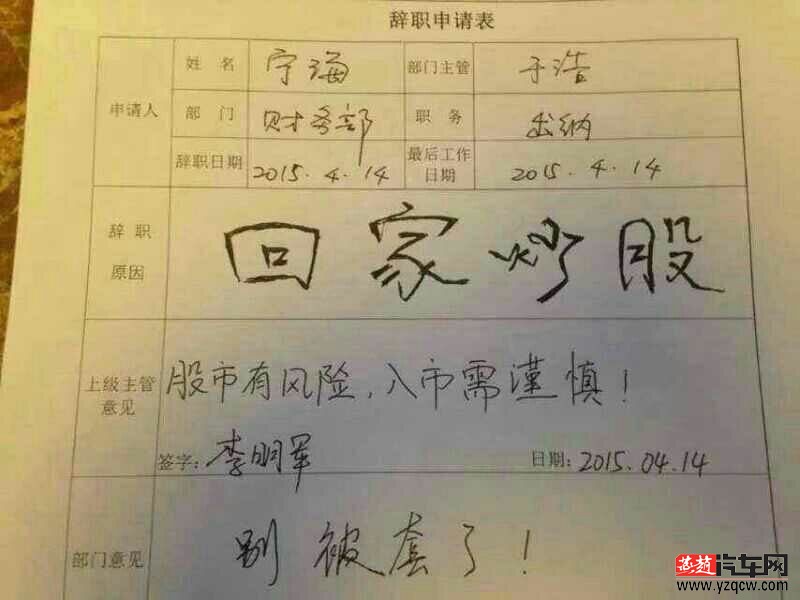 辞职申请表
申请人 姓名 宁海 部门主管 于浩
部门 财务部 职务 出纳
辞职日期 2015.4.14 最后工作日期 2015.4.14
辞职原因 回家炒股
上级主管意见 股市有风险,入市需谨慎!
签字: 李明军 日期: 2015.04.14
部门意见 别被套了!
芜湖汽车网
www.yzqcw.com